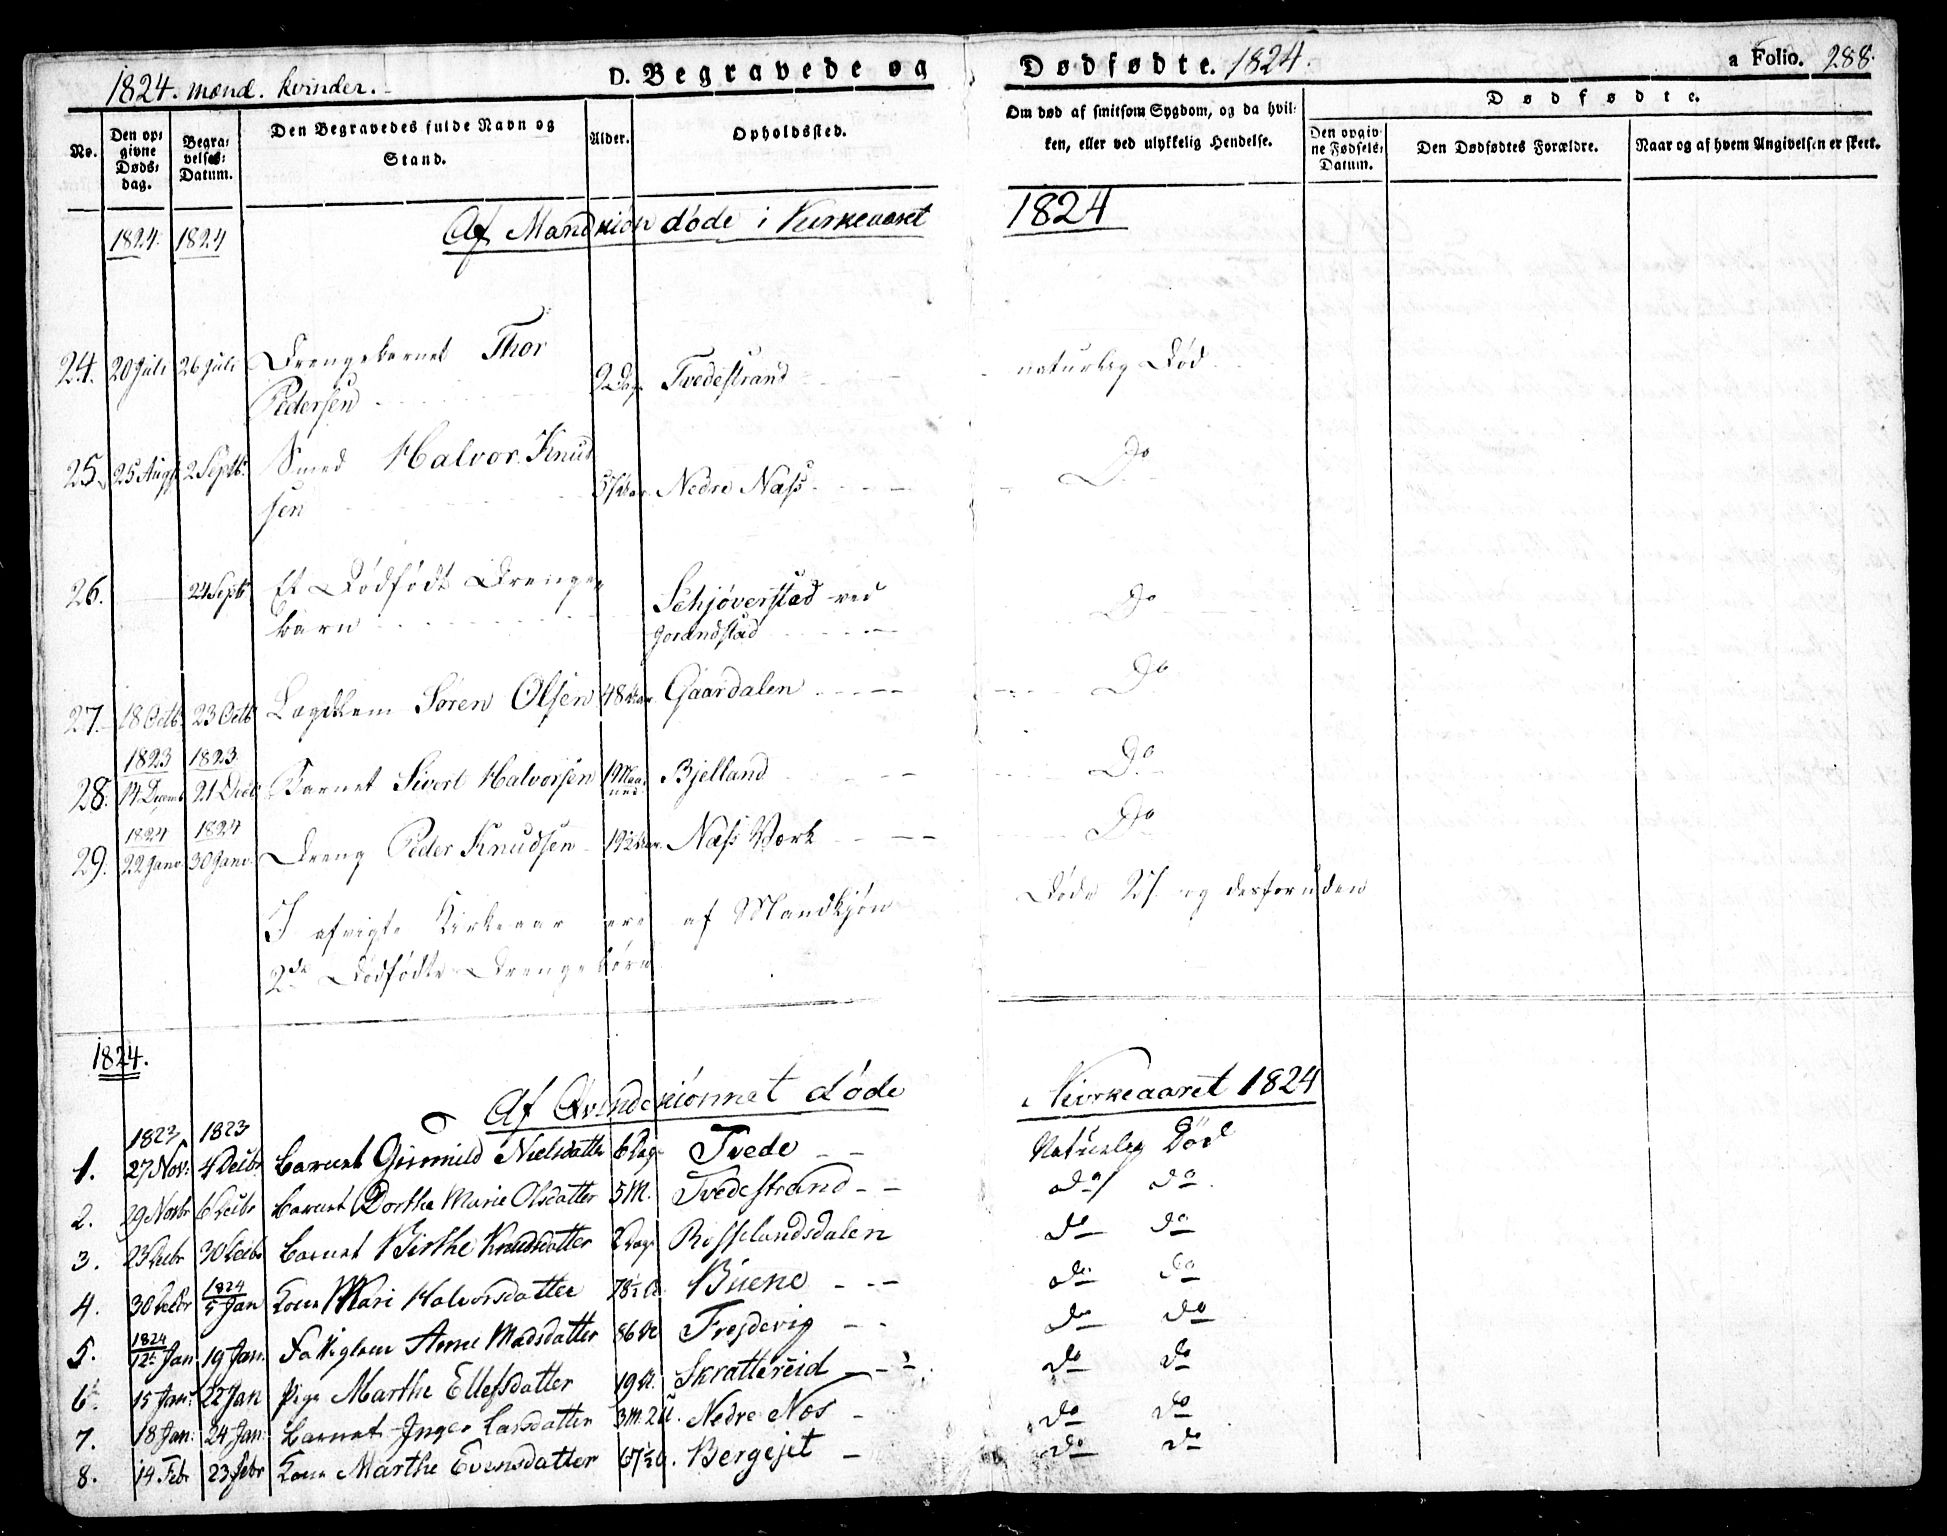 1824. mænd. kvinder.
D. Begravede og Dødfødte. 1824.
a Folio. 288.
No.
Den op-
givne
Døds-
dag.
Begra-
velses-
Datum.
Den Begravedes fulde Navn og
Stand.
Alder.
Opholdssted.
Om død af smitsom Sygdom, og da hvil-
ken, eller ved ulykkelig Hendelse.
Dødfødte.
Den opgiv-
ne Fødsels-
Datum.
Den Dødfødtes Forældre.
Naar og af hvem Angivelsen er skeet.
1824. 1824 Af Mandkiøn døde i Kirkeaaret 1824
24. 20 Juli 26 Juli Drengebarnet Thor
Pedersen 2 Dage Tvedestrand naturlig Død
25. 25 Augst 2 Septb. Smed Halvor Knud
sen Nedre Næss Do
26. 24 Septb Et Dødfødt Drenge
barn Schjøverstad ved
Jorandstad Do
27. 18 Octb. 23 Octb Lægdslem Søren Olsen 48 Aar Gaardalen Do
1823 1823
28. 14 Decemb 21 Decb Barnet Sivert Halvorsen 1 Maa
ned Bjelland Do
1824 1824
29. 22 Janv 30 Janv. Dreng Peder Knudsen Næss Værk Do
I afvigte Kirkeaar ere af Mandkjøn Døde 27. og desforuden
2de Dødfødte Drengebørn
1824.
Af Qvindekiønnet døde i Kirkeaaret 1824
1823 1823
1. 27 Nov: 4 Decbr. Barnet Gunnild Nielsdatter 6 Dage Tvede Naturlig Død
2. 29 Novbr 6 Decbr Barnet Dorthe Marie Olsdatter 5 M. Tvedestrand do do
3. 23 Decbr 30 Decbr Barnet Birthe Knudsdatter 2 Dage Rosselandsdalen do do
1824
4. 30 Decbr 5 Jan Kone Mari Halvorsdatter Buene do do
1824
5. 12te Jan 19 Jan. Fattiglem Anne Madsdatter 86 Frejdevig do do
6. 15 Jan: 22 Jan Pige Marthe Ellefsdatter 19 Skrattereid do do
7. 18 Jan: 24 Jan: Barnet Inger Larsdatter 3 M. 2 U. Nedre Nos do do
8. 14 Febr 23 Febr Kone Marthe Evensdatter Bergejet do do